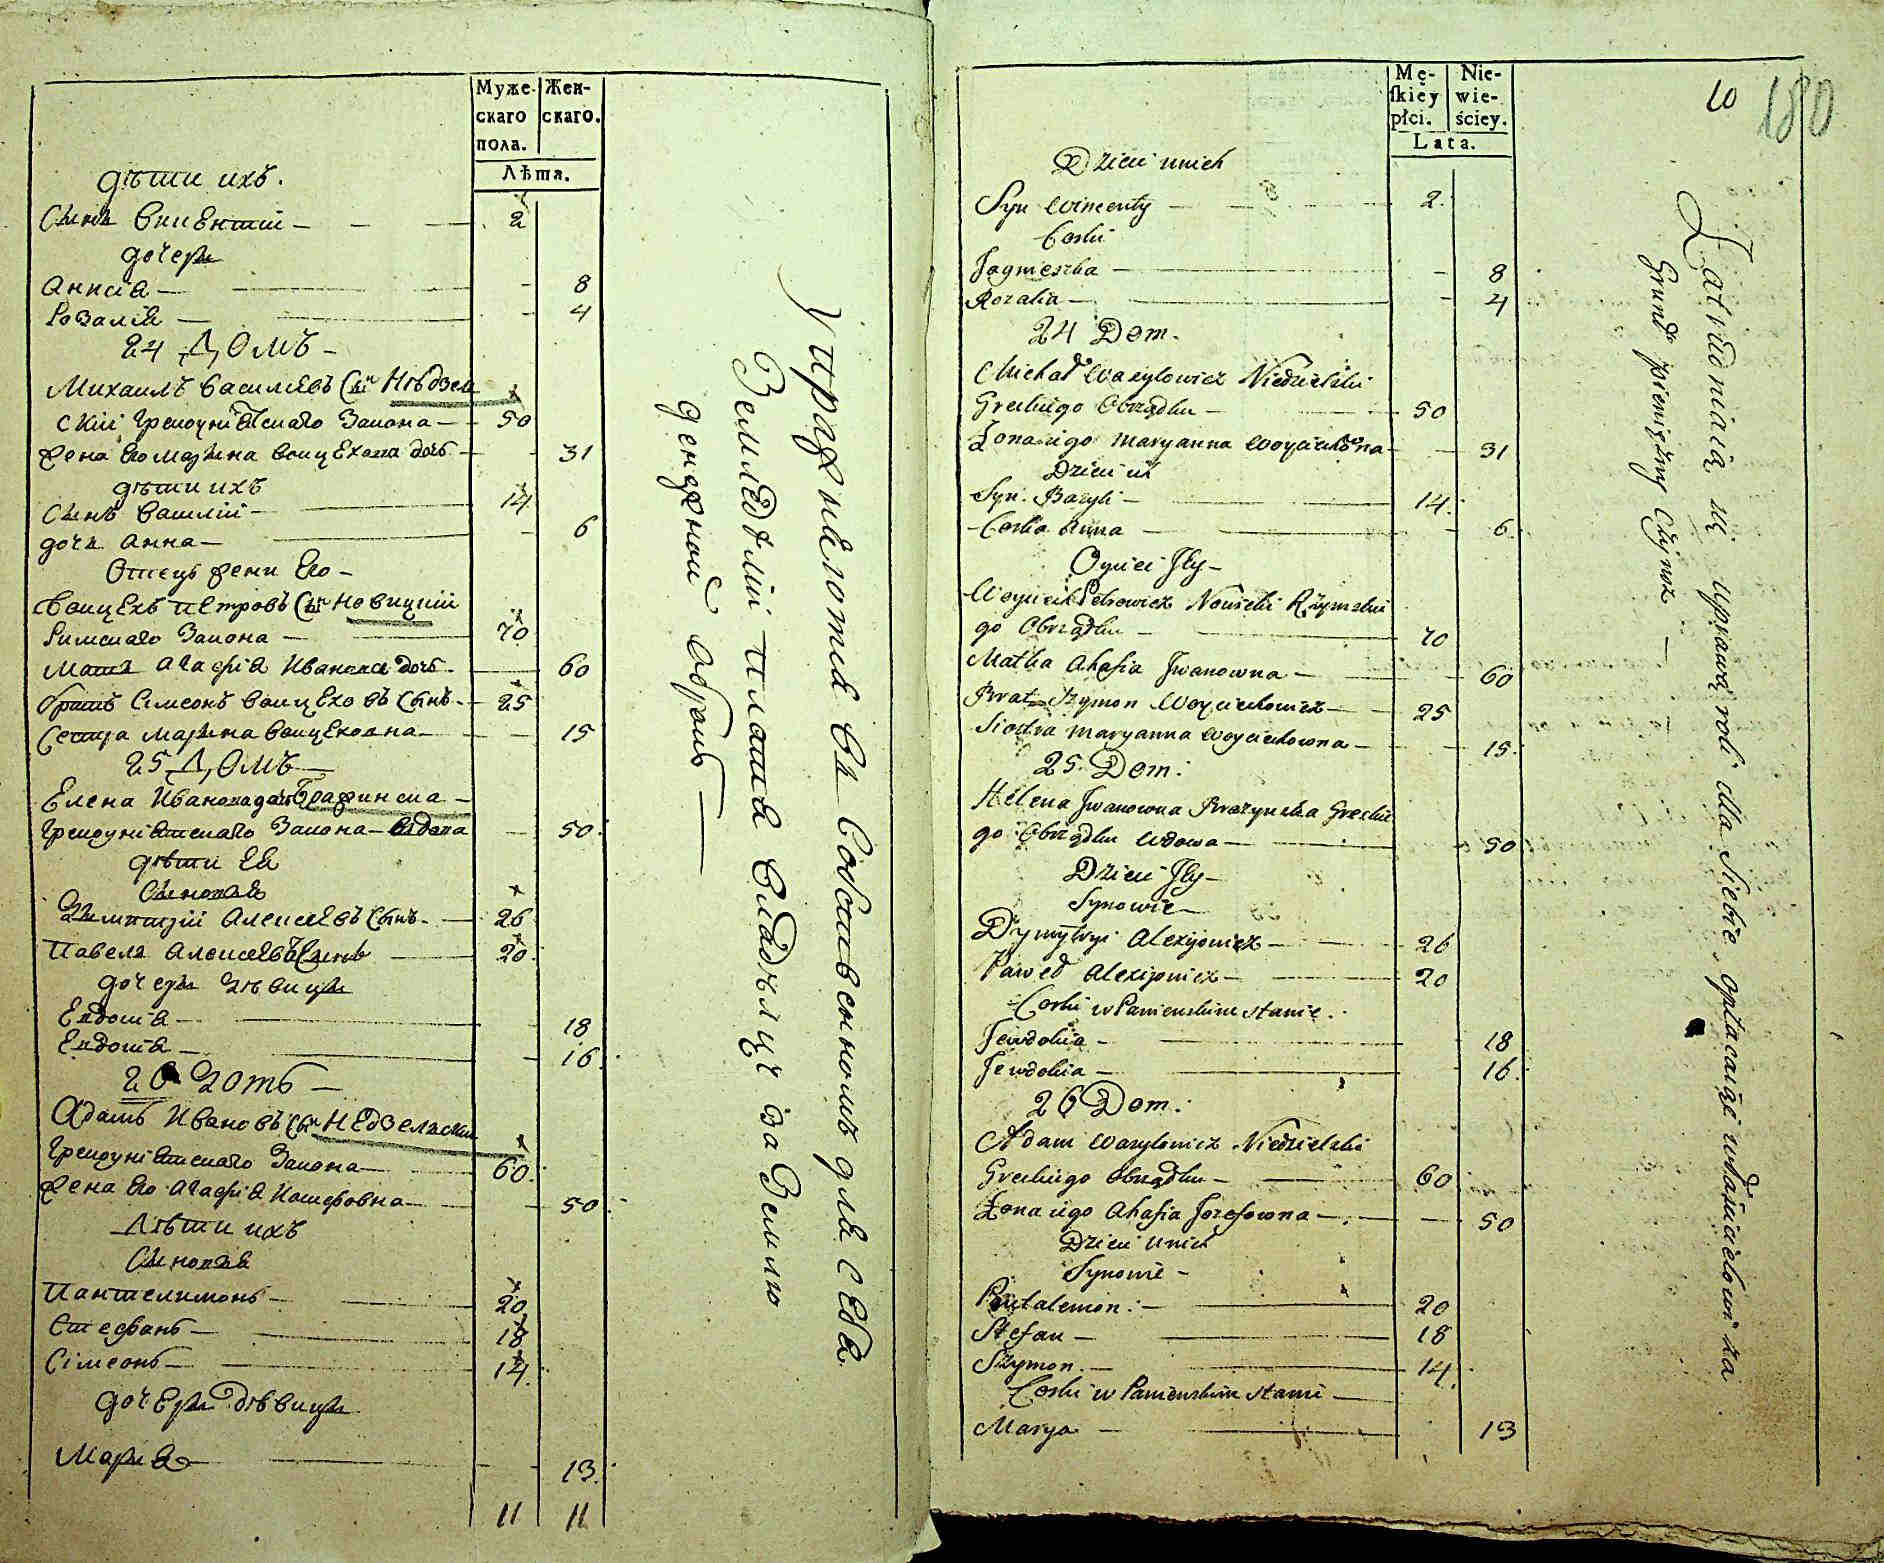 Муже-
скаго
пола.
Жен-
скаго.
Лѣта.
дѣти ихъ.
Сынъ Викентій — 2
дочери
Аннсія — 8
Розалія — 4
24 Домъ —
Михаилъ Васильевъ Сынъ Нѣдзел
скій Грекоуніятскаго Закона — 50
Жена Его Марина Войцехова дочь — 31
дѣти ихъ
Сынъ Василій — 14
дочь Анна — 6
Отецъ жены Его —
Войцехъ Петровъ Сынъ Новицкій
Римскаго Закона — 70
Мать Агафія Иванова дочь — 60
братъ Сімеонъ Войцеховъ Сынъ — 25
Сестра Марина Войцеховна — 15
25 Домъ —
Елена Иванова дочь Бражинска —
Грекоуніятскаго Закона — вдова — 50
дѣти Ея
Сыновья
Димитрій Алексѣевъ Сынъ — 26
Павелъ Алексѣевъ Сынъ — 20
дочери дѣвицы
Евдокія — 18
Евдокія — 16
26 Домъ —
Адамъ Ивановъ Сынъ Недзельски
Грекоуніятскаго Закона — 60
Жена Его Агафія Іосифовна — 50
Дѣти ихъ
Сыновья
Пантелимонъ — 20
Стефанъ — 18
Сімеонъ — 14
дочери дѣвицы
Марія — 13
11 11
Упражняются въ Собственномъ для себя
Земледѣліи платя владѣлцу за Землю
денежной оброкъ —
Mę-
ſkiey
płci.
Nie-
wie-
ściey.
Lata.
10
180
Dzieci unich
Syn Wincenty — 2.
Corki
Jagnieszka — 8
Rozalia — 4
24 Dom.
Michał Wasylowicz Niedzielski
Greckiego Obrządku — 50
Żona iego Maryanna Woyciechowna — 31
Dzieci ich
Syn Bazyli — 14.
Corka Anna — 6.
Oyciec Jey —
Woyciech Petrowicz Nowicki Rzymskie
go Obrządku — 70
Matka Ahafia Jwanowna — 60
Brat Szymon Woyciechowicz — 25
Siostra Maryanna Woyciechowna — 15
25. Dom.
Helena Jwanowna Brazynska Greckie
go Obrządku Wdowa — 50
Dzieci Jey —
Synowie —
Dymytryi Alexijowicz — 26
Paweł Alexijowicz — 20
Corki w Panienskim stanie.
Jewdokia — 18
Jewdokia — 16.
26 Dom.
Adam Wasylowicz Niedzielski
Greckiego Obrządku — 60
Żona iego Ahafia Jozefowna — 50
Dzieci unich
Synowie —
Pantalemon — 20
Stefan — 18
Szymon — 14.
Corki w Panienskim stanie —
Marya — 13
Zatrudniaią się uprawą roli dla Siebie, opłacaiąc właścicielowi za
Grunt pieniężny Czynsz —